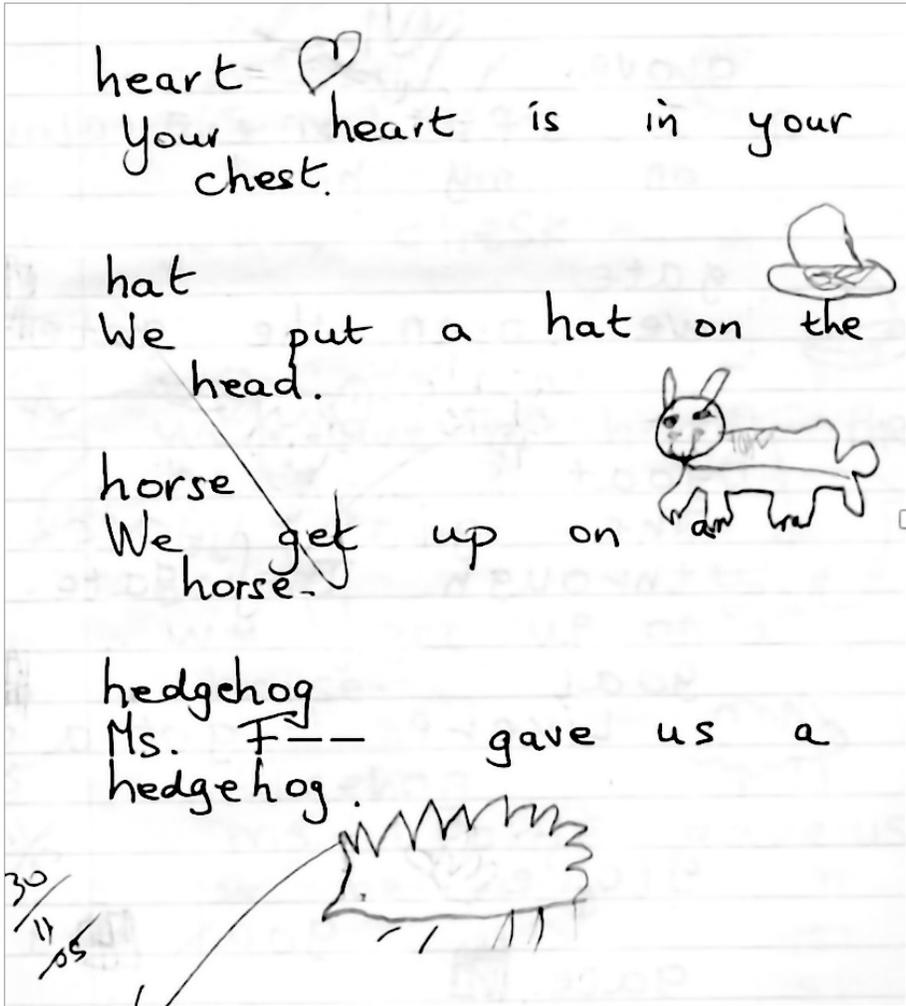 heart
Your heart is in your
chest.
hat
We put a hat on the
head.
horse
We get up on an
horse.
hedgehog
Ms. F--
gave us a
hedgehog.
30/11/05